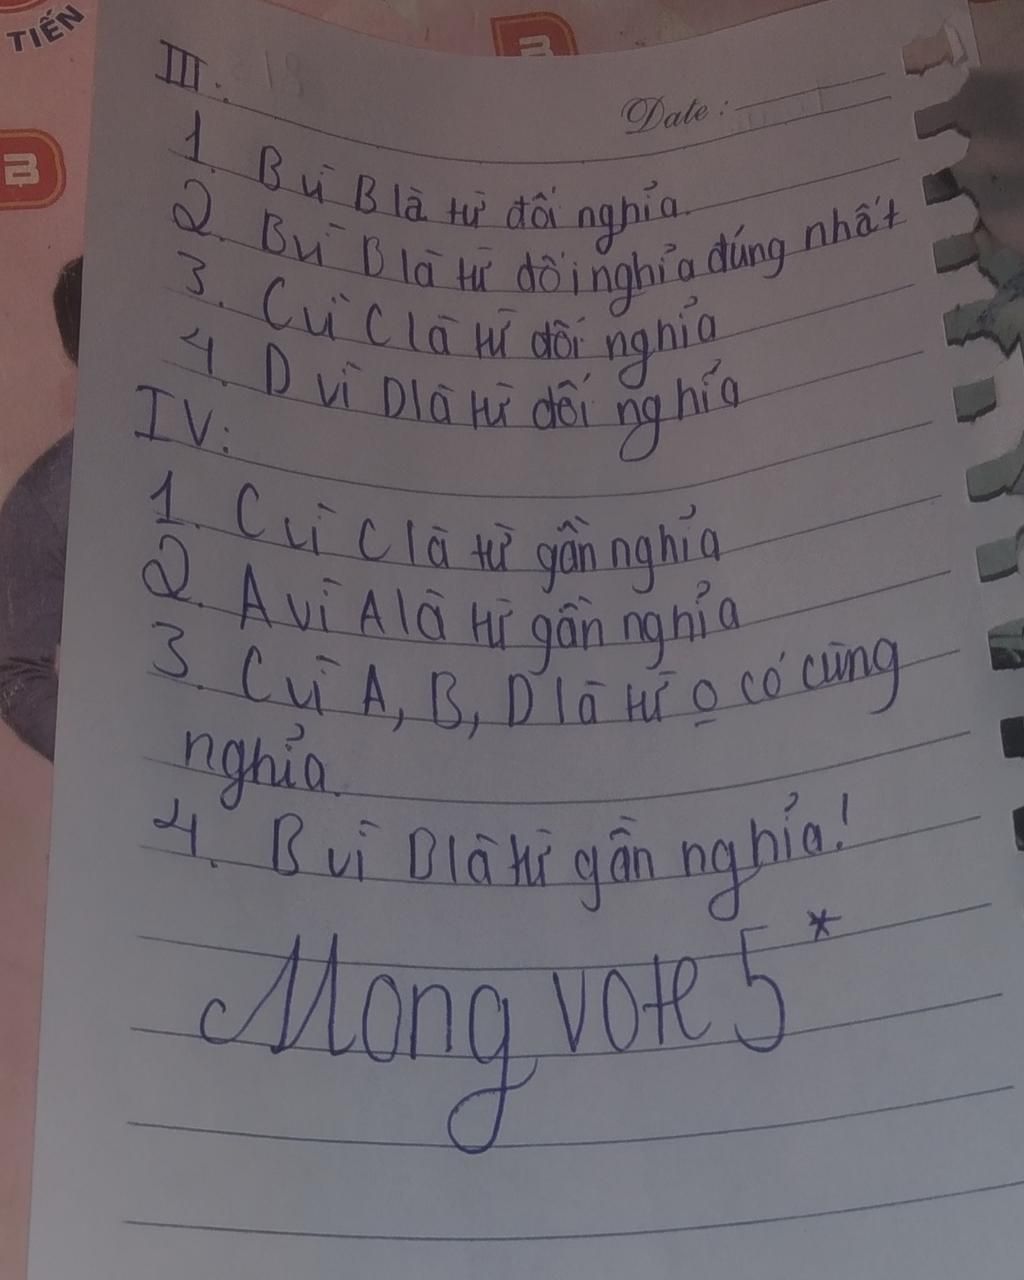 TIẾN
III.
Date:
1. B vì B là từ đối nghĩa.
2. B vì B là từ đối nghĩa đúng nhất
3. C vì C là từ đối nghĩa
4. D vì D là từ đối nghĩa
IV:
1. C vì C là từ gần nghĩa
2. A vì A là từ gần nghĩa
3. C vì A, B, D là từ o có cùng
nghĩa.
4. B vì B là từ gần nghĩa!
Mong vote 5*